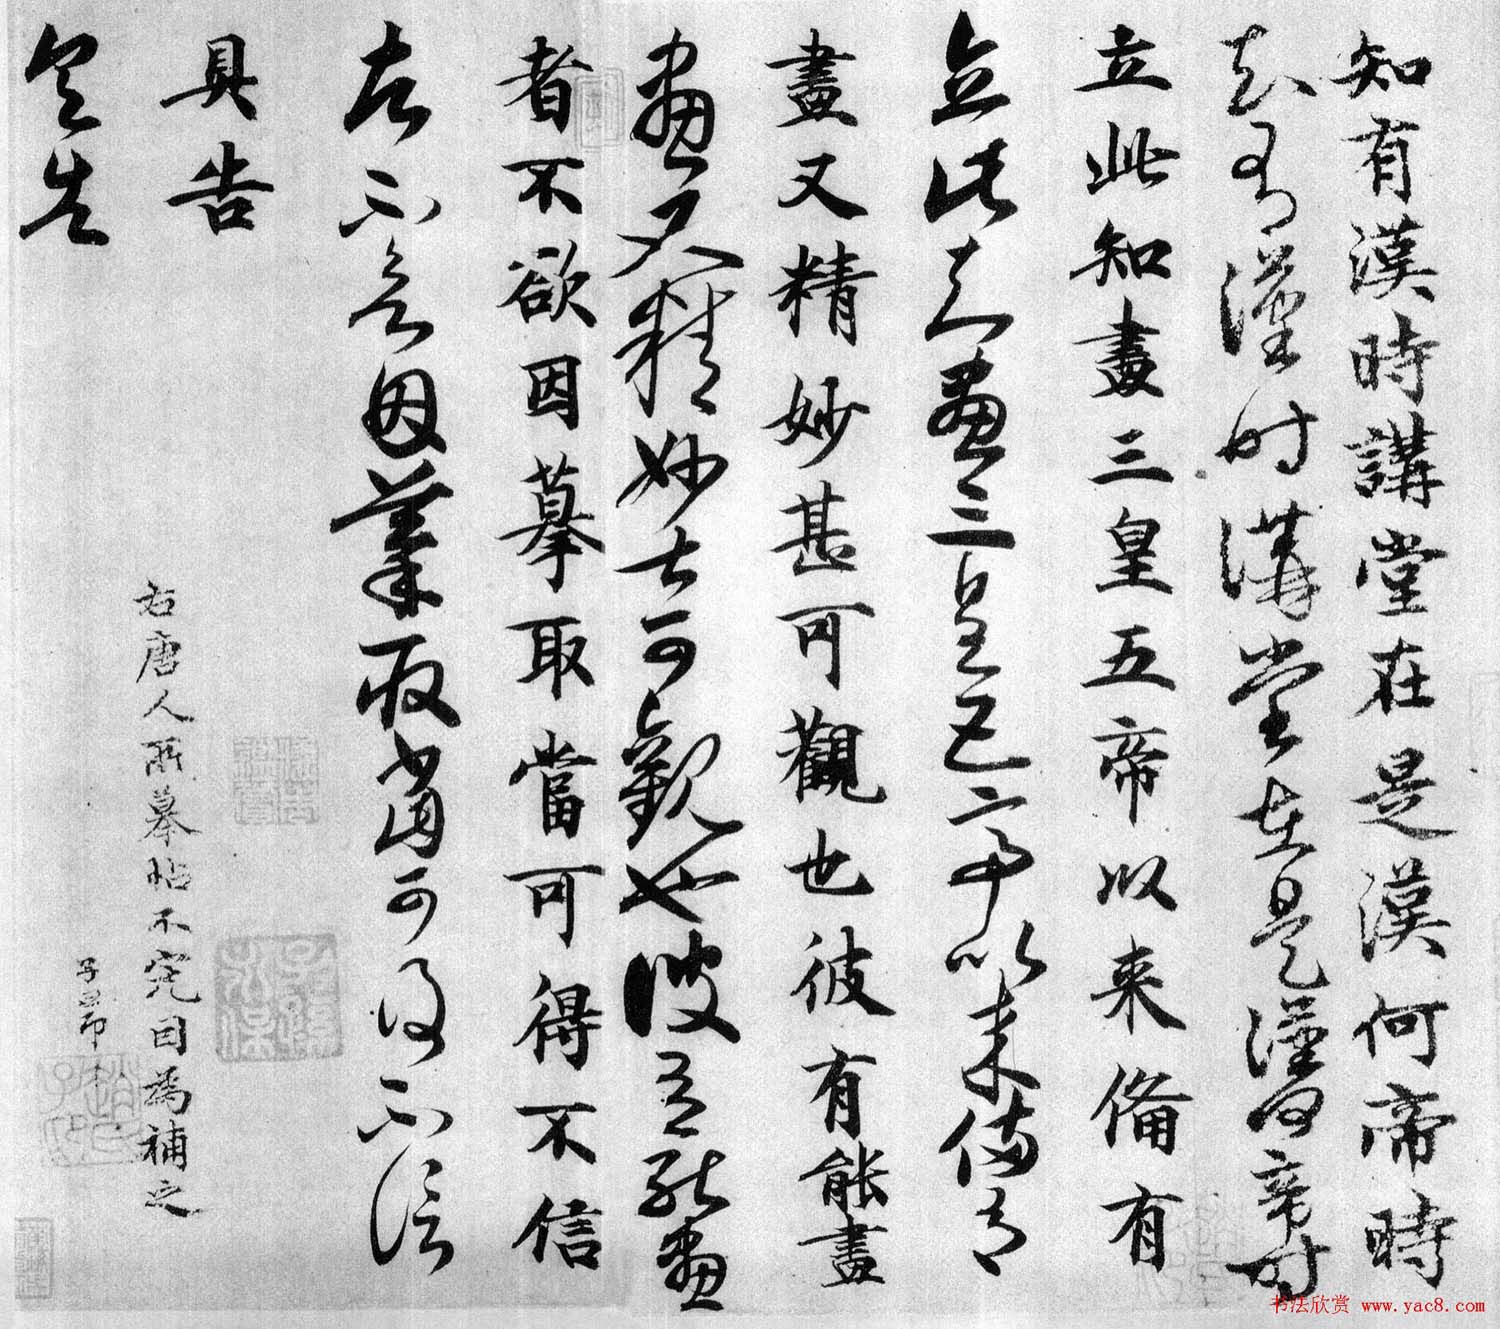 知有漢時講堂在是漢何帝時
知有漢時講堂在是漢何帝時
立此知畫三皇五帝以来俻有
立此知畫三皇五帝以来俻有
畫又精妙甚可觀也彼有能畫
畫又精妙甚可觀也彼有能畫
者不欲因摹取當可得不信
者不欲因摹取當可得不信
具告
具告
右唐人所摹帖不完因為補之
子昂
书法欣赏 www.yac8.com